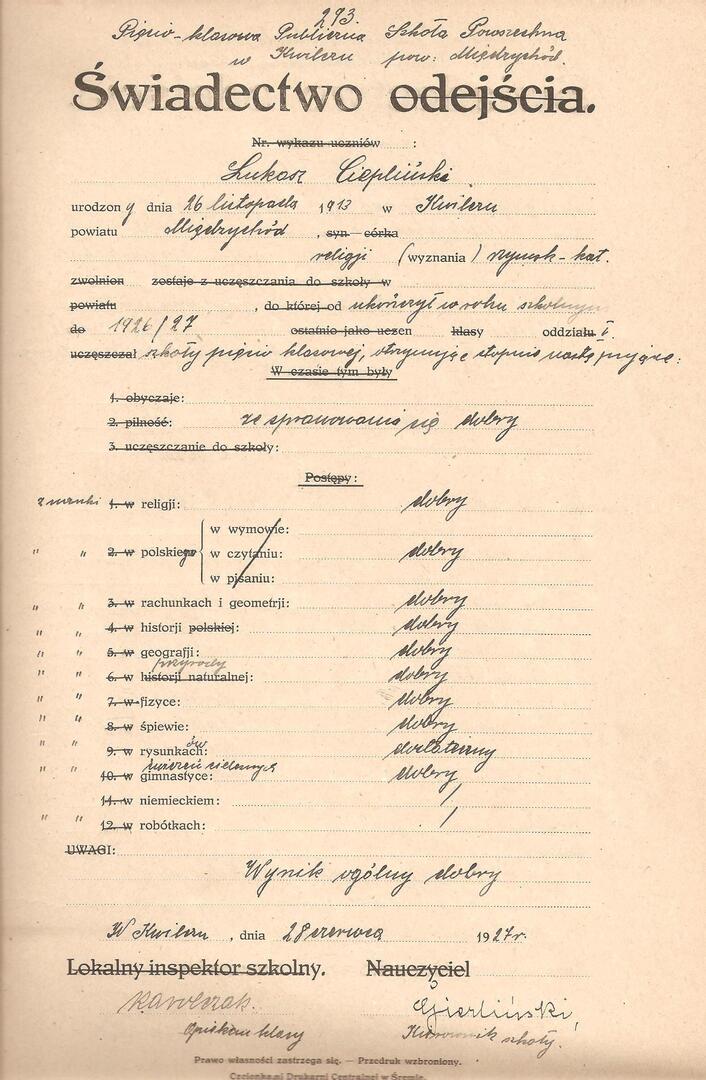 293.
Pięcio-klasowa Publiczna Szkoła Powszechna
w Kwilczu pow: Międzychód.
Świadectwo odejścia.
Nr. wykazu uczniów :
Łukasz Ciepliński
urodzony dnia 26 listopada 1913 w Kwilczu
powiatu Międzychód, syn córka
religji (wyznania) rzymsk-kat.
zwolnion zostaje z uczęszczania do szkoły w
powiatu , do której od ukończył w roku szkolnym
do 1926/27 ostatnio jako uczen klasy oddziału
uczęszczał szkoły pięcio klasowej, otrzymując stopnie następujące:
W czasie tym były
1. obyczaje:
2. pilność: ze sprawowania się dobry
3. uczęszczanie do szkoły:
Postępy:
z nauki 1. w religji: dobry
w wymowie:
" " 2. w polskiego w czytaniu: dobry
w pisaniu:
" " 3. w rachunkach i geometrji: dobry
" " 4. w historji polskiej: dobry
" " 5. w geografji: dobry
przyrody
" " 6. w historji naturalnej: dobry
" " 7. w fizyce: dobry
" " 8. w śpiewie: dobry
" " 9. w rysunkach: ów dostateczny
ćwiczeń cielesnych
" " 10. w gimnastyce: dobry
11. w niemieckiem: /
" " 12. w robótkach: /
UWAGI:
Wynik ogólny dobry
W Kwilczu, dnia 28 czerwca 1927 r.
Lokalny inspektor szkolny. Nauczyciel
Kawlczak.
Opiekun klasy Kierownik szkoły.
Prawo własności zastrzega się. — Przedruk wzbroniony.
Czcionkami Drukarni Centralnej w Śremie.